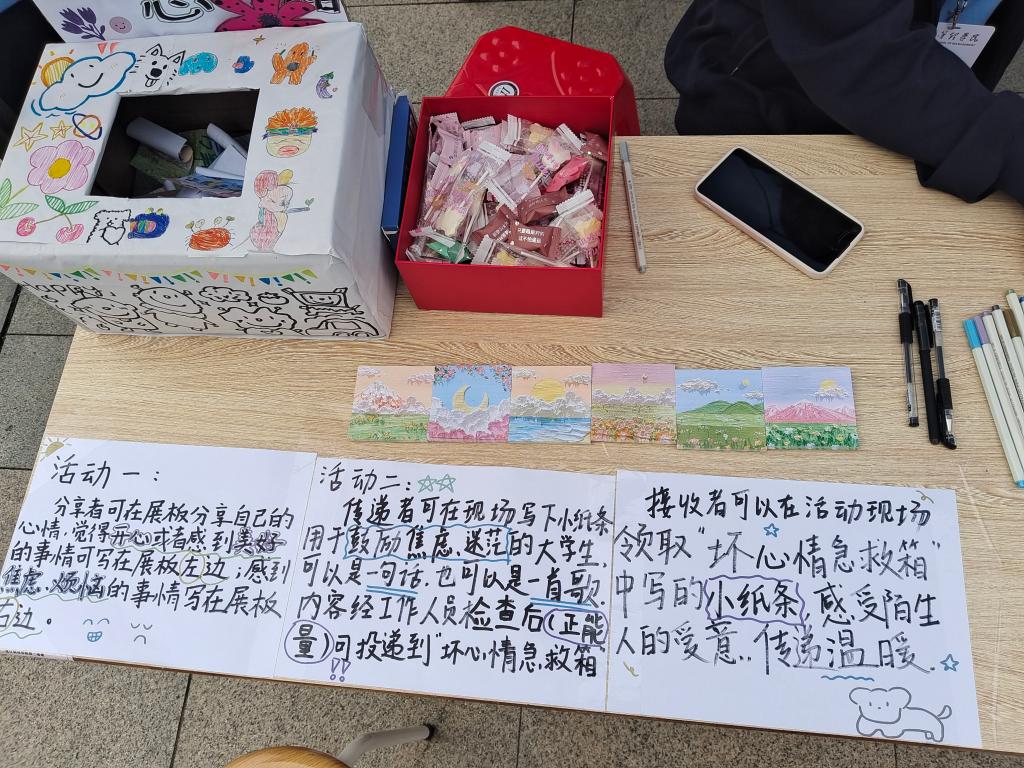 心
活动一：
分享者可在展板分享自己的
心情，觉得开心或者感到美好
的事情可写在展板左边；感到
焦虑、烦恼的事情写在展板
右边。
活动二：
传递者可在现场写下小纸条
用于鼓励焦虑、迷茫的大学生，
可以是一句话，也可以是一首歌，
内容经工作人员检查后（正能
量）可投递到“坏心情急救箱
接收者可以在活动现场
领取“坏心情急救箱”
中写的小纸条，感受陌生
人的爱意，传递温暖．